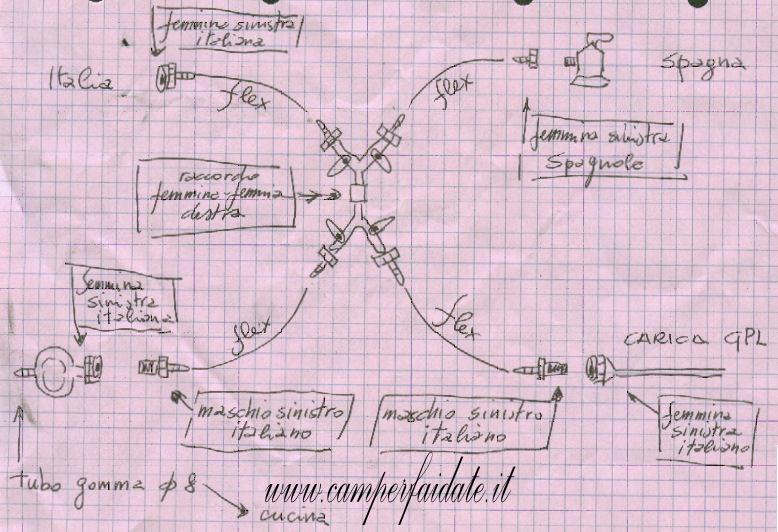 femmina sinistra
italiana
Italia
flex
flex
Spagna
femmina sinistra
Spagnola
raccordo
femmina-femmina
destra
femmina
sinistra
italiana
flex
flex
CARICA GPL
maschio sinistro
italiano
maschio sinistro
italiano
femmina
sinistra
italiano
tubo gomma φ 8
cucina
www.camperfaidate.it